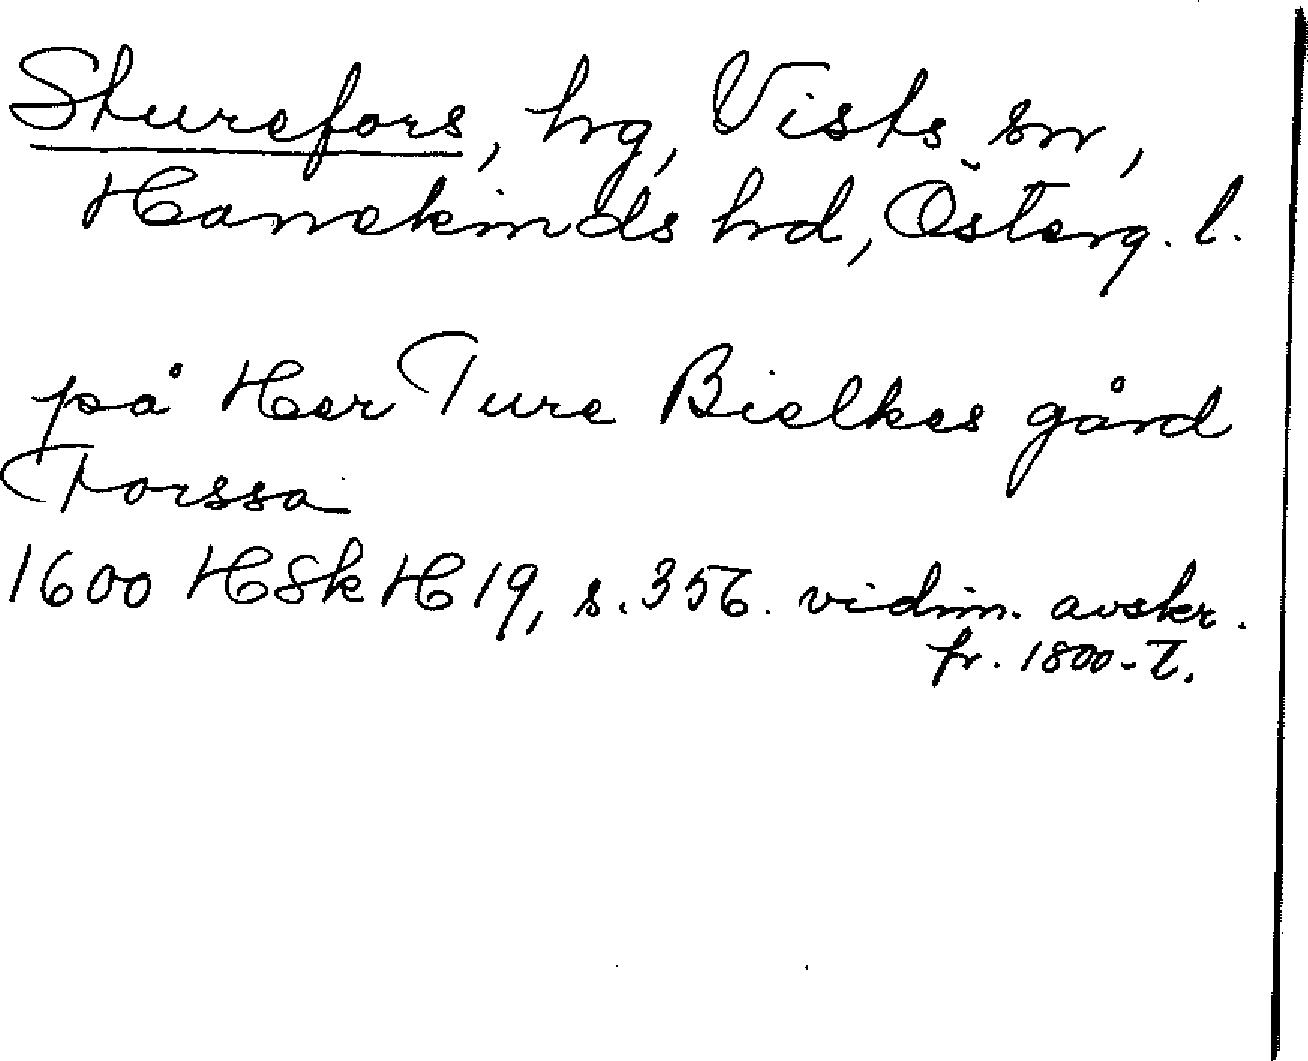 Sturefors, hg, Vists sn,
Hanekinds hd, Österg. l.
på Her Ture Bielkes gård
Forssa
1600 HSk H 19, s. 356. vidim. avskr.
fr. 1800-t.